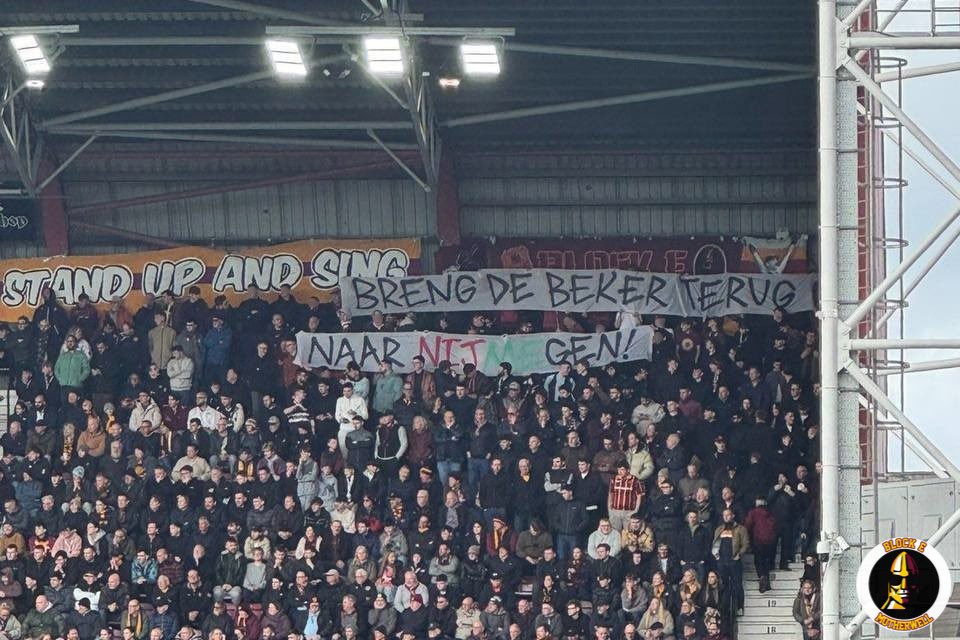 hop
STAND UP AND SING
BLOCK E
BRENG DE BEKER TERUG
NAAR NIJMEGEN!
19
18
BLOCK E
MOTHERWELL